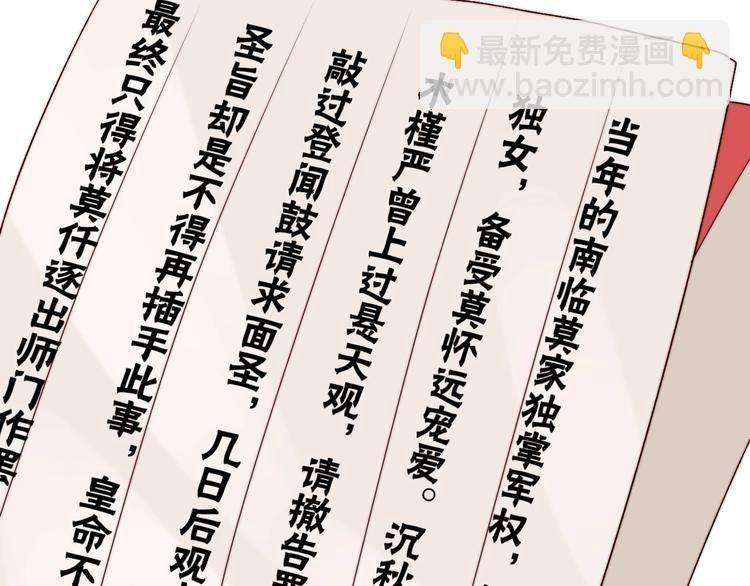 最新免费漫画
www.baozimh.com
当年的南临莫家独掌军权，
独女，备受莫怀远宠爱。沉秋
木槿严曾上过悬天观，请撤告罪
敲过登闻鼓请求面圣，几日后观
圣旨却是不得再插手此事，皇命不
最终只得将莫仟逐出师门作罢